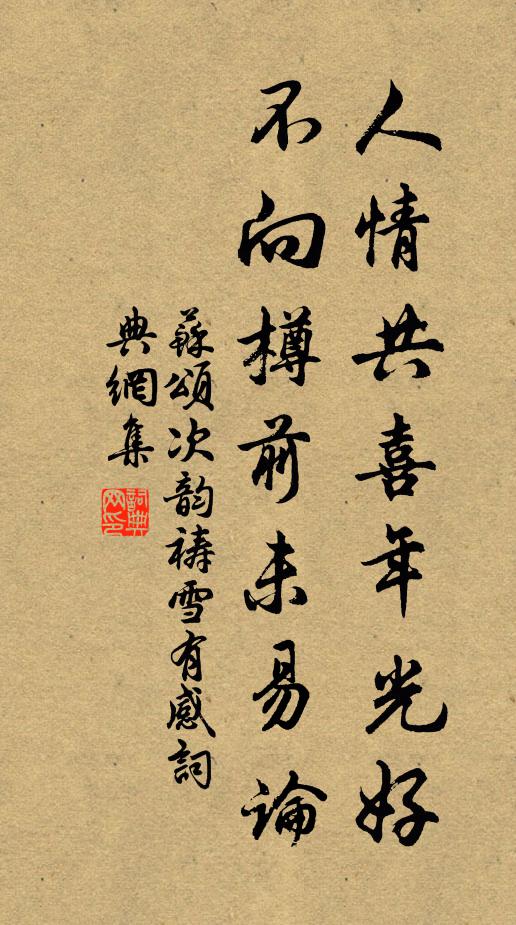 人情共喜年光好
不向樽前未易論
蘇頌次韵禱雪有感詞
典網集
詞典網印